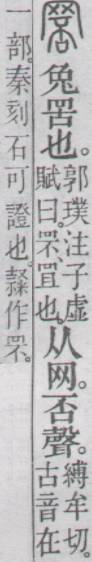 兔罟也。郭璞注子虛賦曰。罘、罝也。从网。否聲。縛牟切。古音在
一部。秦刻石可證也。隸作罘。